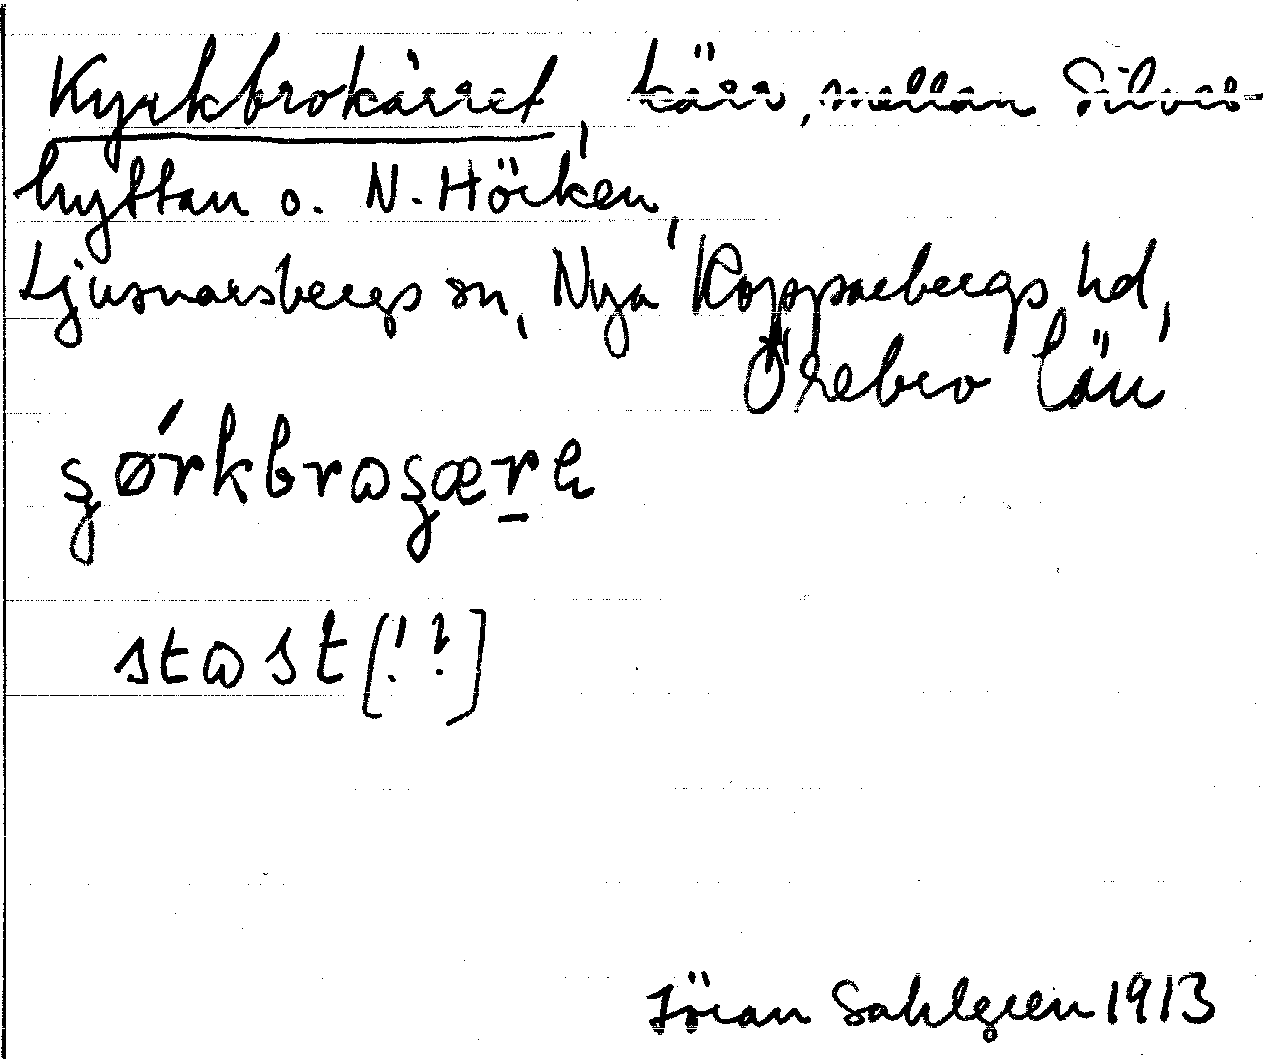 Kyrkbrokärret, kärr, mellan Silver-
hyttan o. N. Hörken,
Ljusnarsbergs sn, Nya Kopparbergs hd,
Örebro län
st [!?]
Jöran Sahlgren 1913